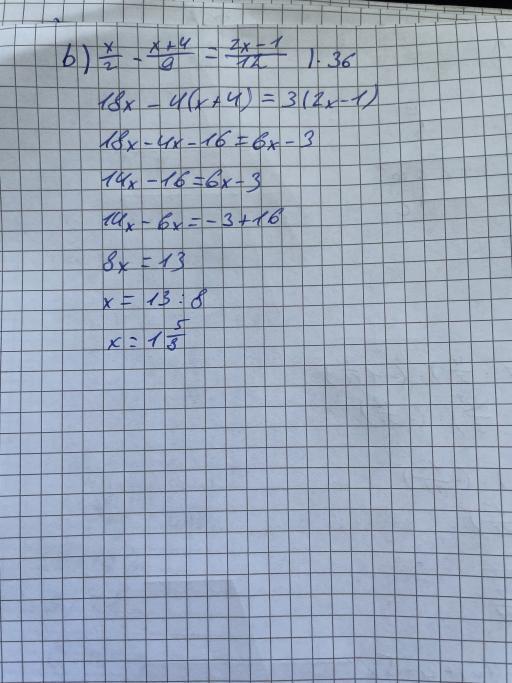 b) x/2 - x+4/9 = 2x-1/12 ) · 36
18x - 4(x+4) = 3(2x-1)
18x-4x-16=6x-3
14x-16=6x-3
14x-6x=-3+16
8x = 13
x = 13 : 8
x = 1 5/8